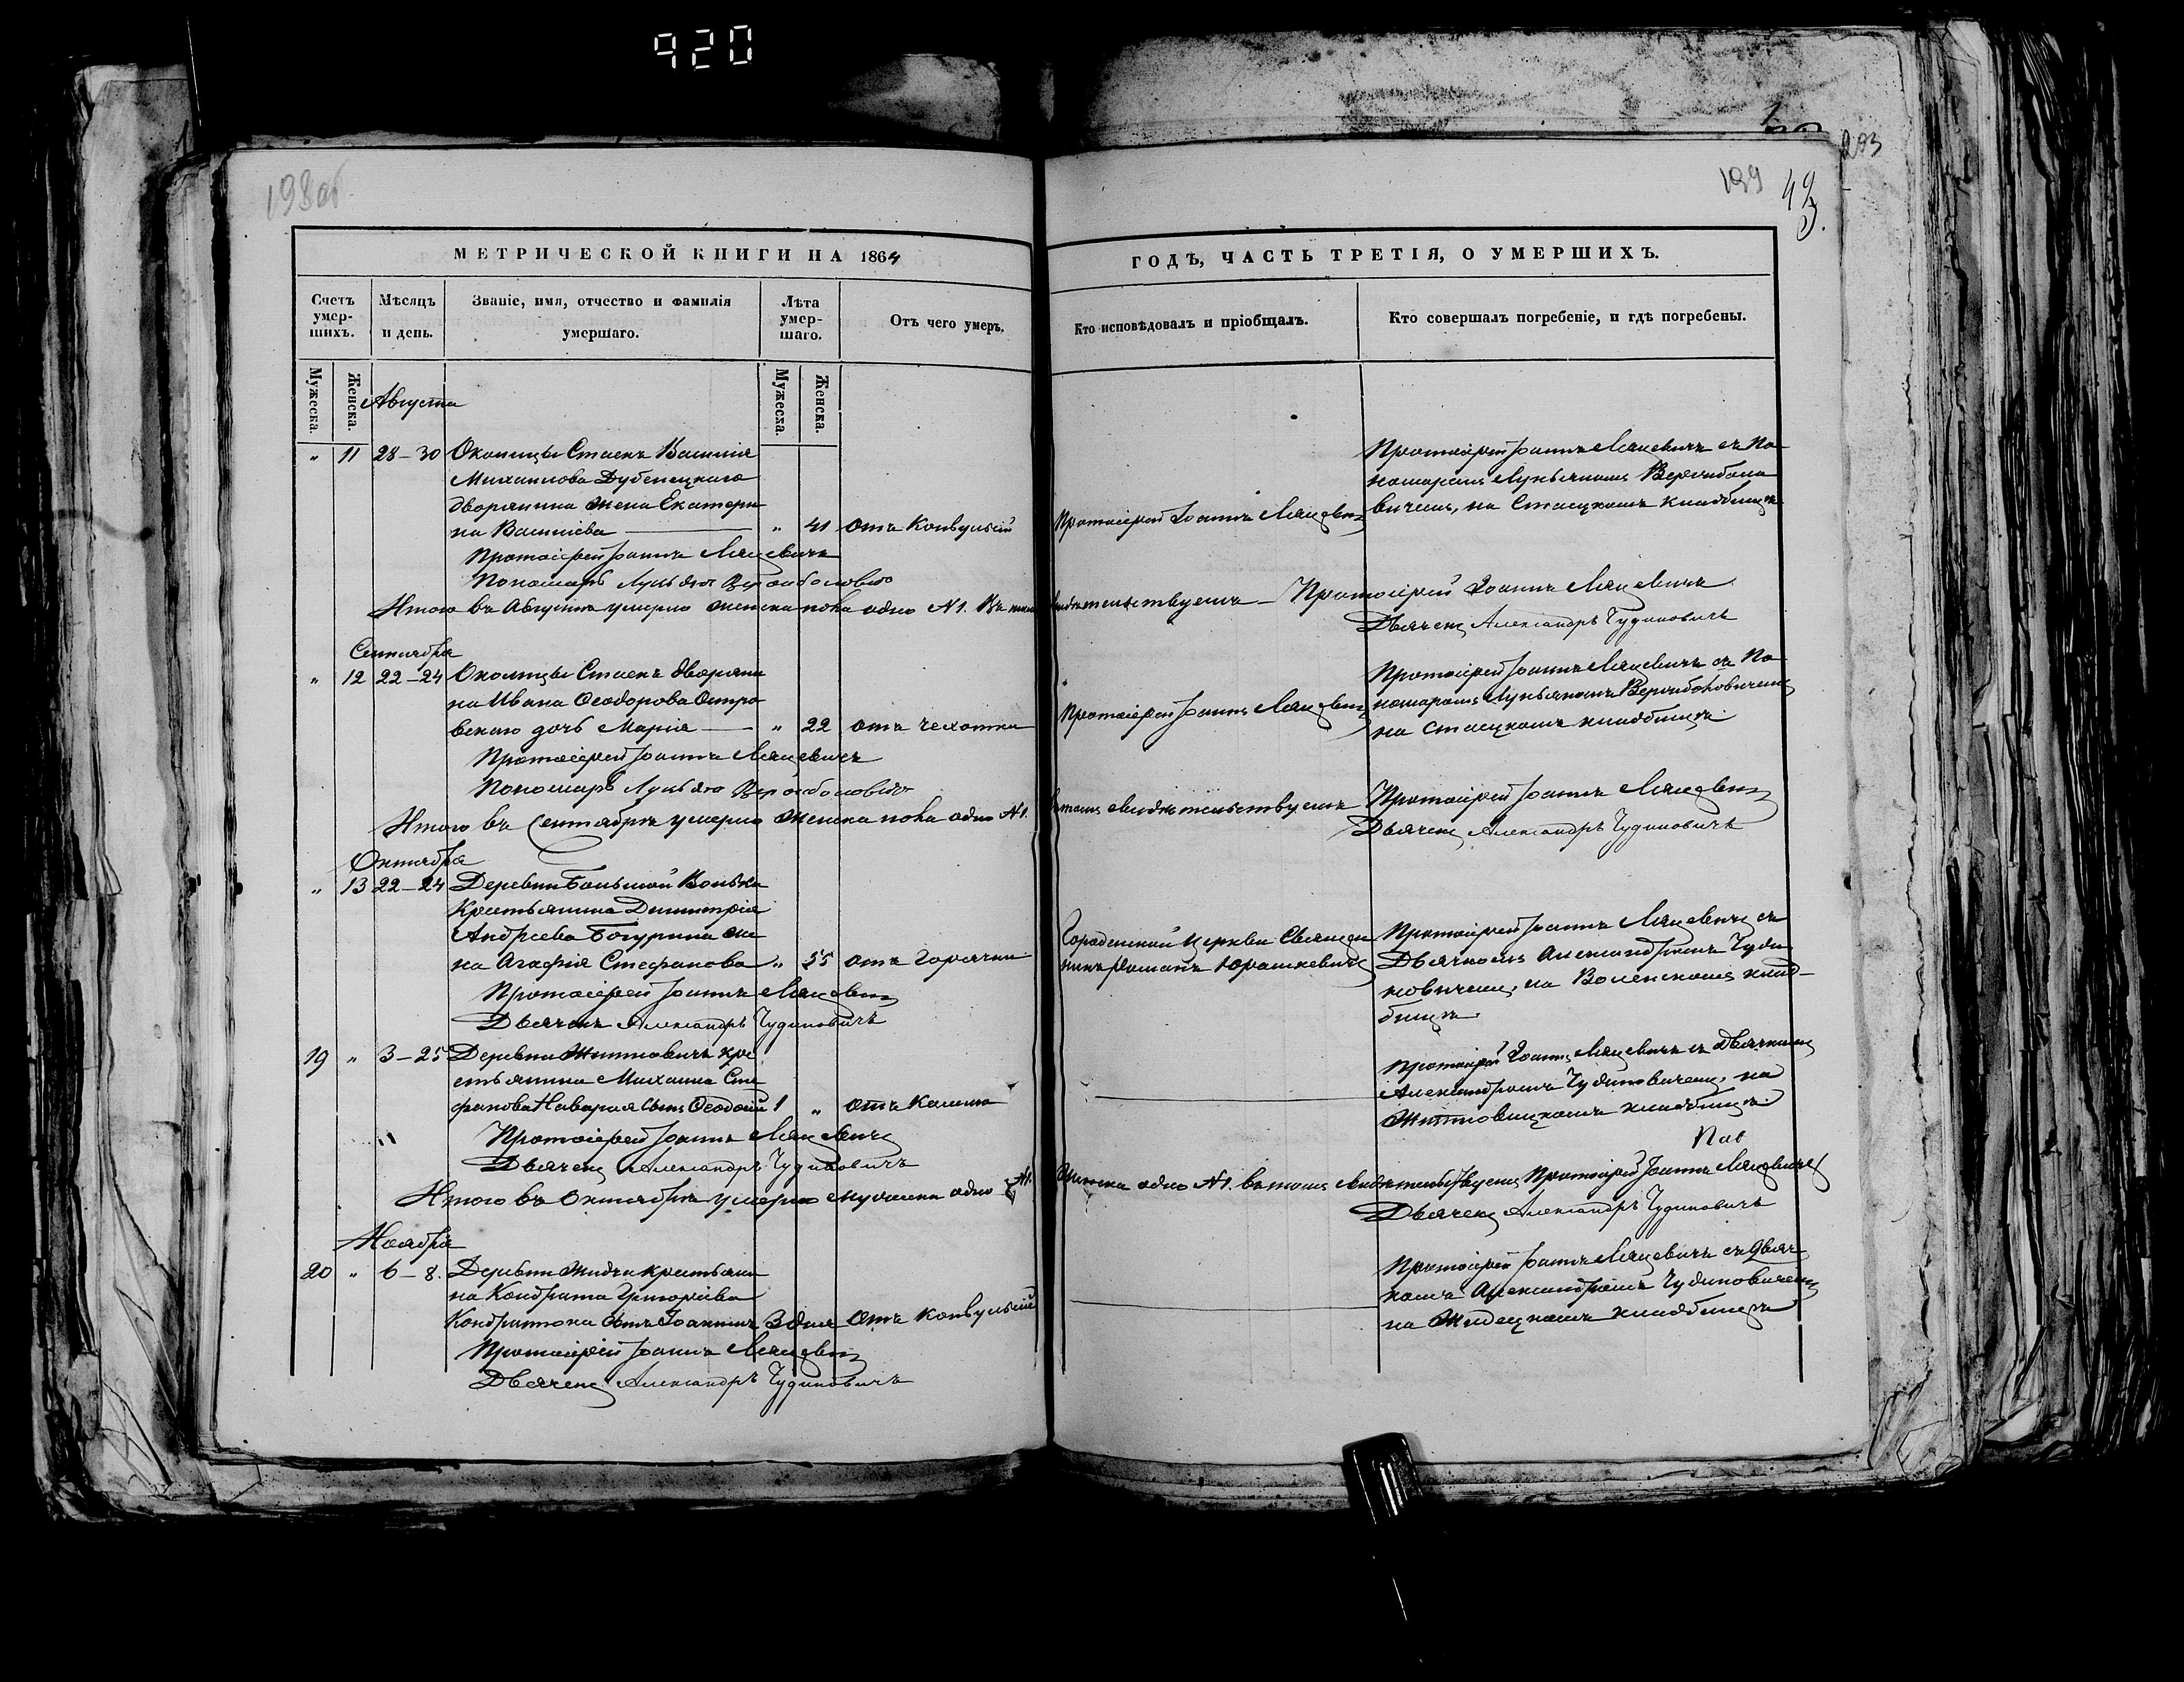 920
198об
203
199 49
МЕТРИЧЕСКОЙ КНИГИ НА 1864
ГОДЪ, ЧАСТЬ ТРЕТІЯ, О УМЕРШИХЪ.
Счетъ умер-шихъ.
Мѣсяцъ и день.
Званіе, имя, отчество и фамилія умершаго.
Лѣта умер-шаго.
Отъ чего умеръ.
Кто исповѣдовалъ и пріобщалъ.
Кто совершалъ погребеніе, и гдѣ погребены.
Мужеска. Женска.
Мужеска. Женска.
Августа
" 11 28–30 Околицы Стаекъ Василія
Михаилова Дубенецкаго
дворянина жена Екатери
на Василіева " 41 отъ Конвульсій
Протоіерей Іоаннъ Ляцевичъ
Протоіерей Іоаннъ Ляцевичъ съ По
номаремъ Лукьяномъ Верчиболо
вичемъ, на Стаецкомъ кладбищѣ
Протоіерей Іоаннъ Ляцевичъ
Пономарь Лукьянъ
Итого въ Августѣ умерло женска пола одно №1. Въ томъ
свидѣтельствуемъ – Протоіерей Іоаннъ Ляцевичъ
Дьячекъ Александръ Чудиновичъ
Сентября
" 12 22–24 Околицы Стаекъ дворяни
на Ивана Ѳеодорова Остро
вскаго дочь Марія " 22 отъ чахотки
Протоіерей Іоаннъ Ляцевичъ
Протоіерей Іоаннъ Ляцевичъ съ По
номаремъ Лукьяномъ Верчиболовичемъ
на Стаецкомъ кладбищѣ.
Протоіерей Іоаннъ Ляцевичъ
Пономарь Лукьянъ
Итого въ Сентябрѣ умерло женска пола одно №1.
въ томъ свидѣтельствуемъ Протоіерей Іоаннъ Ляцевичъ
Дьячекъ Александръ Чудиновичъ
Октября
" 13 22–24 Деревни Большой Вольки
крестьянина Димитрія
Андреева Богурина же
на Агафія Стефанова " 55 отъ Горячки
Городенской церкви Священ
никъ Романъ Юрашкевичъ
Протоіерей Іоаннъ Ляцевичъ съ
Дьячкомъ Александромъ Чуди
новичемъ, на Воленскомъ клад-
бищѣ.
Протоіерей Іоаннъ Ляцевичъ
Дьячекъ Александръ Чудиновичъ
19 " 3–25 Деревни Житновичъ кре
стьянина Михаила Сте
фанова сынъ Ѳеодосій 1 " отъ Кашля
Протоіерей Іоаннъ Ляцевичъ съ Дьячкомъ
Александромъ Чудиновичемъ, на
Житновицкомъ кладбищѣ.
Протоіерей Іоаннъ Ляцевичъ
Дьячекъ Александръ Чудиновичъ
Итого въ Октябрѣ умерло мужеска одно №1.
Женска одно №1. въ томъ свидѣтельствуемъ Протоіерей Іоаннъ Ляцевичъ
Дьячекъ Александръ Чудиновичъ
Ноября
20 " 6–8. Деревни Жидчи крестьяни
на Кондрата Григоріева
Кондратюка сынъ Іоаннъ 3 дня отъ конвульсій
Протоіерей Іоаннъ Ляцевичъ съ Дьяч
комъ Александромъ Чудиновичемъ
на Жидецкомъ кладбищѣ
Протоіерей Іоаннъ Ляцевичъ
Дьячекъ Александръ Чудиновичъ